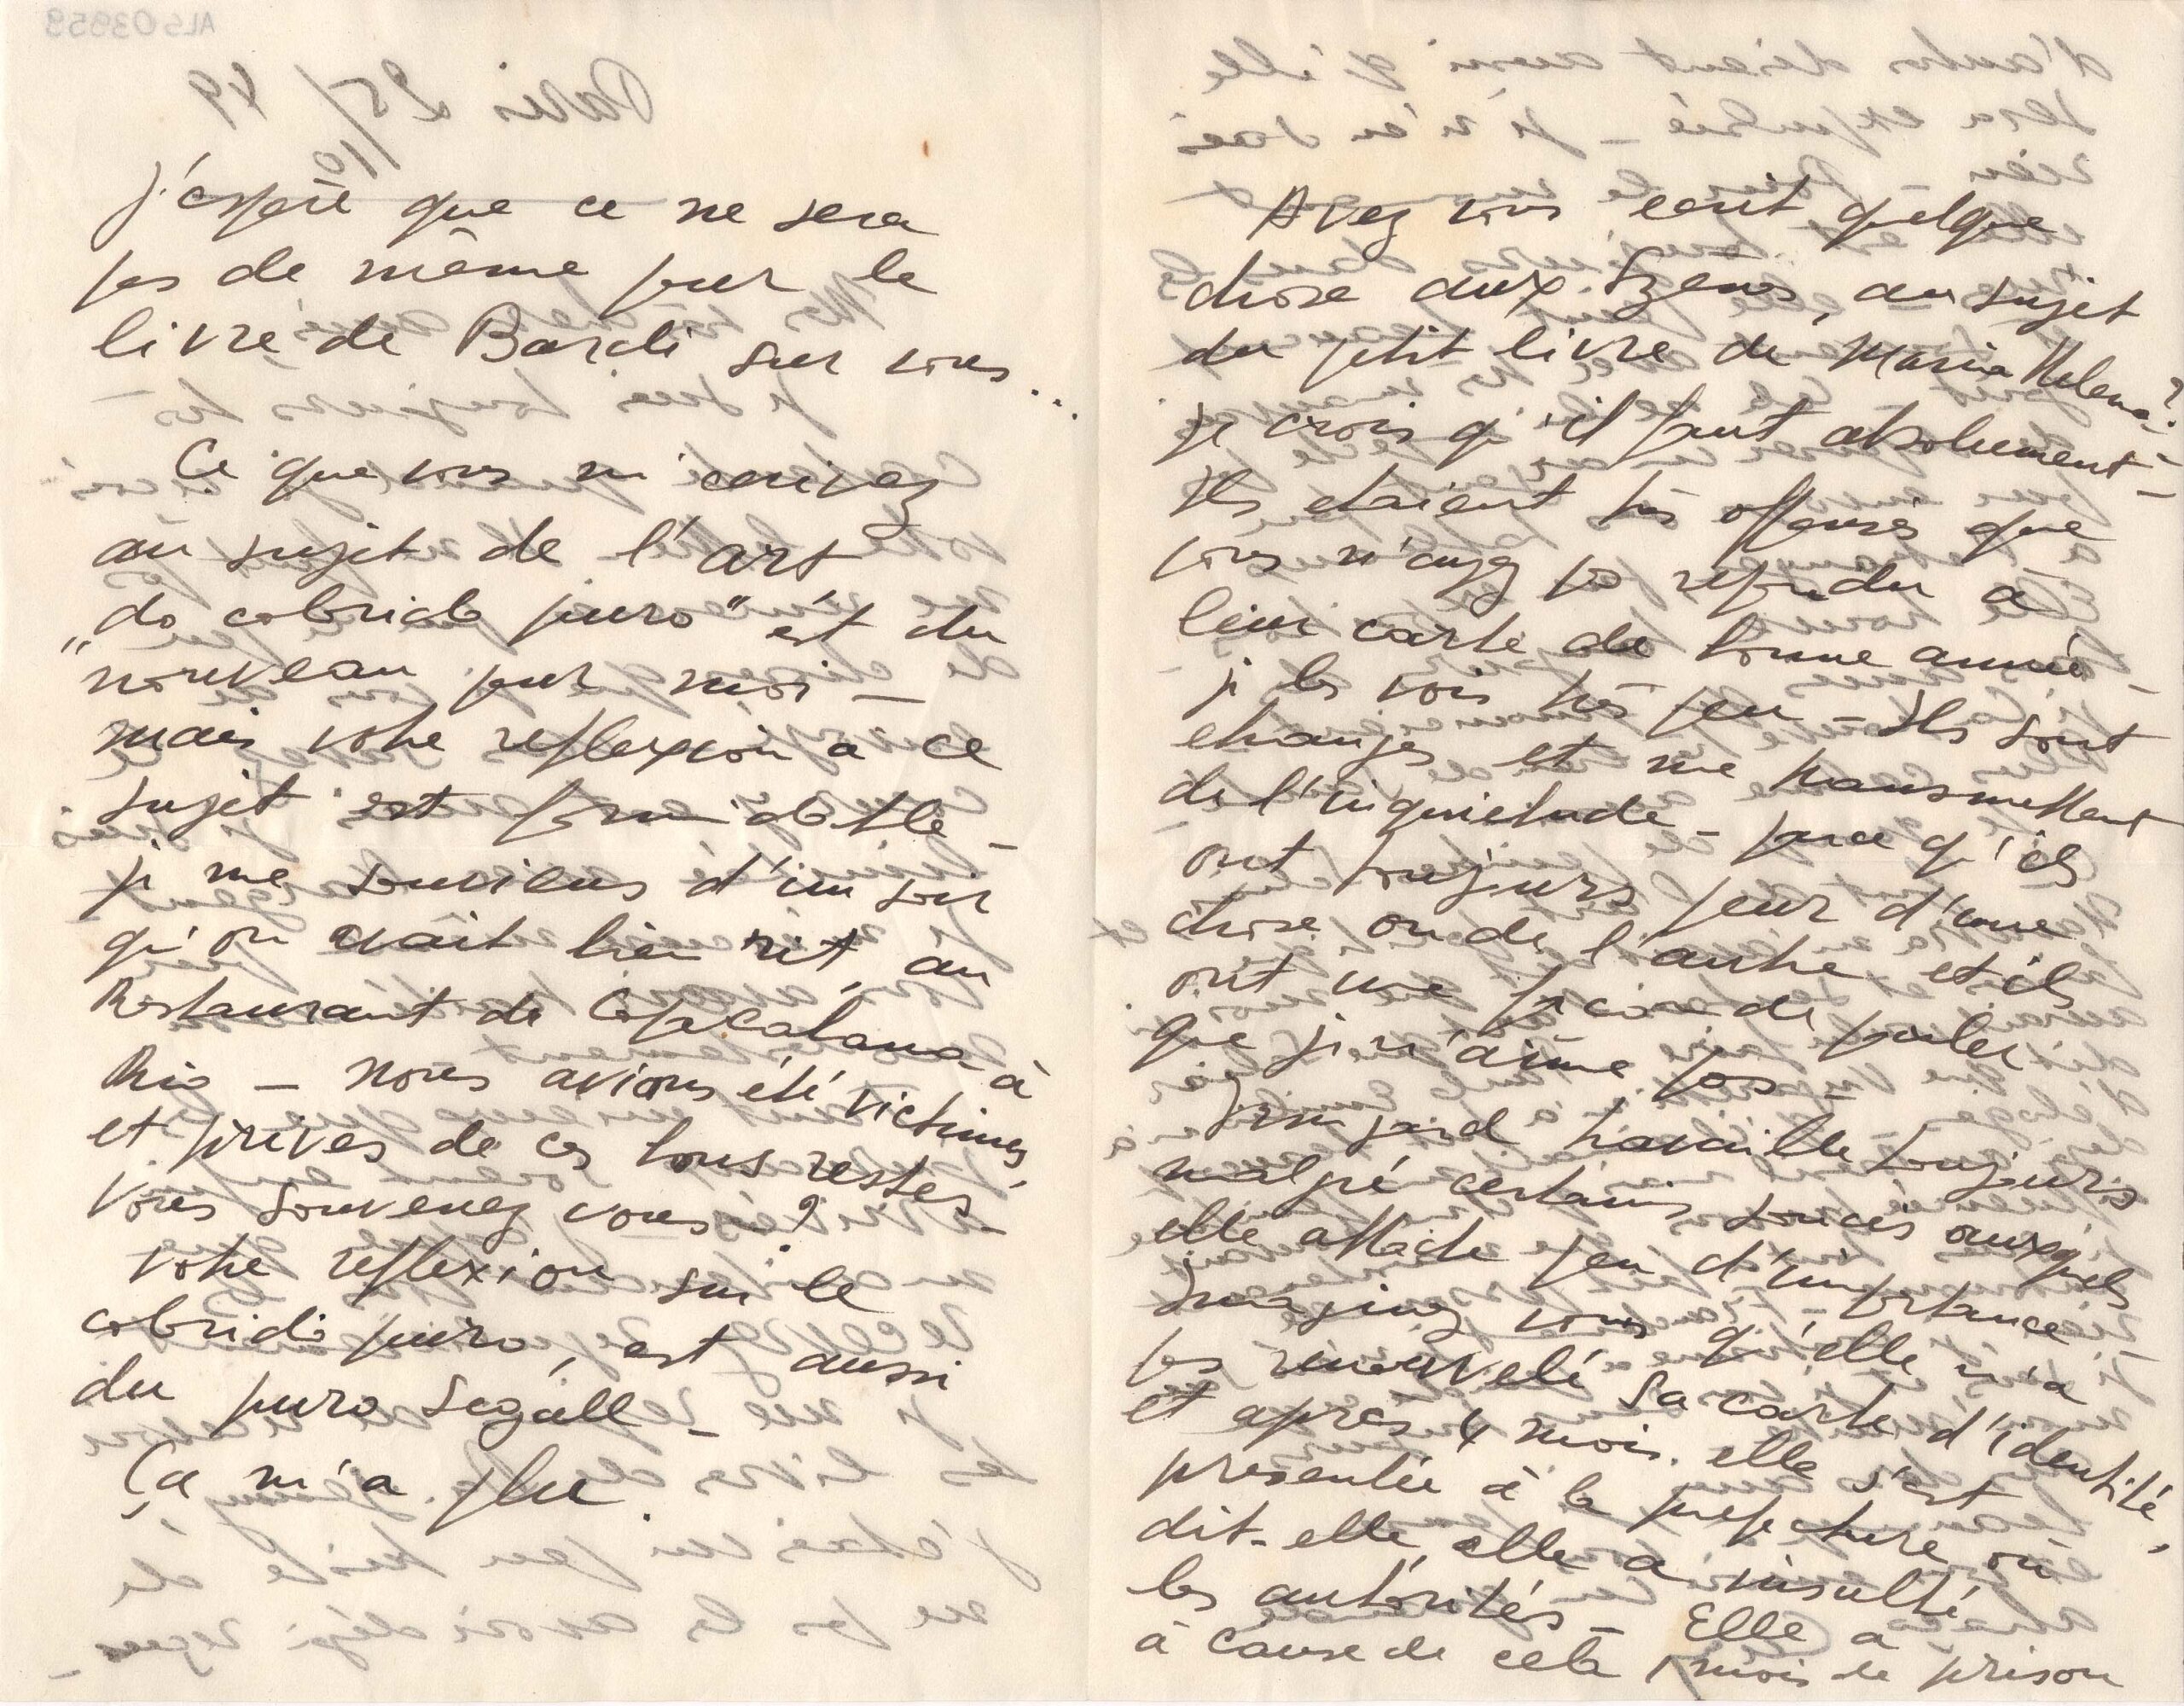 j'espère que ce ne sera
pas de même pour le
livre de Bardi sur vous...
Ce que vous m'ecrivez
au sujet de l'art
„do cabrido puro" est du
nouveau pour moi –
mais votre reflexion a ce
sujet est formidable –
je me souviens d'un soir
qu'on avait bien rit, au
Restaurant de Copacabana à
Rio – nous avions été victimes
et privés de ces bons restes –
Vous souvenez vous ?
Votre reflexion sur le
cabrido puro, est aussi
du puro Segall –
Ça m'a plu.
Avez vous ecrit quelque
chose aux Szenes, au sujet
du petit livre de Maria Helena?
je crois qu'il faut absolument –
Ils etaient très offensés que
vous n'ayez pas repondu à
leur carte de bonne année –
je les vois très peu – Ils sont
etranges et me transmettent
de l'inquietude – parce qu'ils
ont toujours peur d'une
chose ou de l'autre et ils
ont une façon de parler
que je n'aime pas –
travaille toujours
malgré certains soucis auxquels
elle attache peu d'importance –
Imaginez vous qu'elle n'a
pas renouvelé sa carte d'identité,
et apres 4 mois elle s'est
presentée à la prefecture où
dit-elle, elle a insulté
les autorités – Elle a
à cause de cela 1 mois de prison